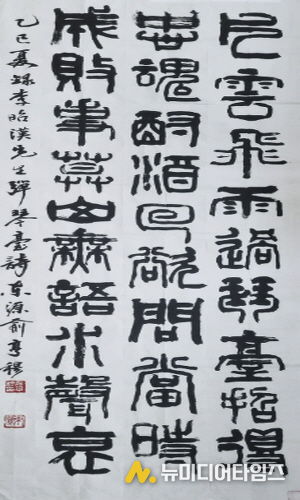 片雲飛雨過琴臺招得
忠魂酹酒回欲問當時
成敗事暮山無語水聲哀
乙巳夏錄李昭漢先生彈琴臺詩 東源 俞亨
뉴미디어타임즈